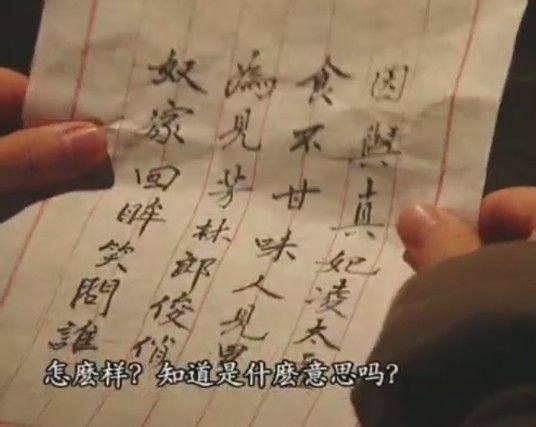 因與真妃凌太
食不甘味人見
為見芳林郎俊俏
奴家回眸笑問誰
怎麽样? 知道是什麽意思吗?